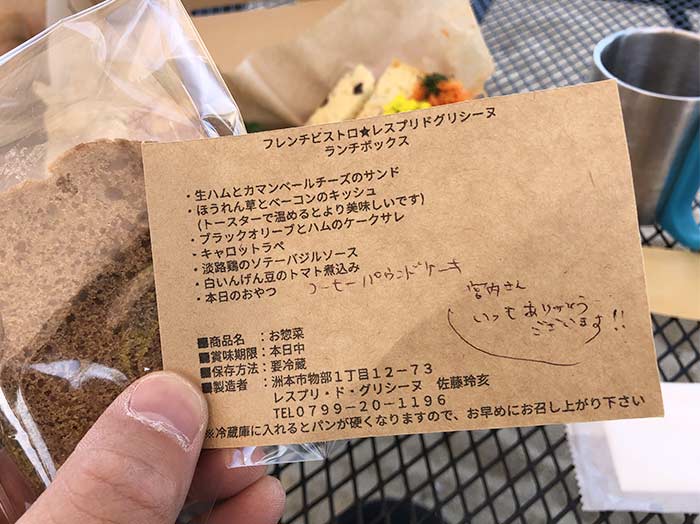 フレンチビストロ★レスプリドグリシーヌ
ランチボックス
・生ハムとカマンベールチーズのサンド
・ほうれん草とベーコンのキッシュ
(トースターで温めるとより美味しいです)
・ブラックオリーブとハムのケークサレ
・キャロットラペ
・淡路鶏のソテーバジルソース
・白いんげん豆のトマト煮込み
・本日のおやつ コーヒーパウンドケーキ
宮内さん
いつもありがとう
ございます!!
■商品名 : お惣菜
■賞味期限 : 本日中
■保存方法 : 要冷蔵
■製造者 : 洲本市物部1丁目12-73
レスプリ・ド・グリシーヌ 佐藤玲亥
TEL0799-20-1196
※冷蔵庫に入れるとパンが硬くなりますので、お早めにお召し上がり下さい